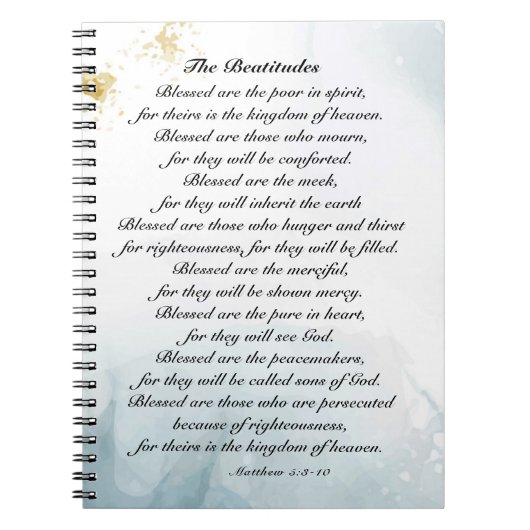 The Beatitudes
Blessed are the poor in spirit,
for theirs is the kingdom of heaven.
Blessed are those who mourn,
for they will be comforted.
Blessed are the meek,
for they will inherit the earth
Blessed are those who hunger and thirst
for righteousness, for they will be filled.
Blessed are the merciful,
for they will be shown mercy.
Blessed are the pure in heart,
for they will see God.
Blessed are the peacemakers,
for they will be called sons of God.
Blessed are those who are persecuted
because of righteousness,
for theirs is the kingdom of heaven.
Matthew 5:3-10